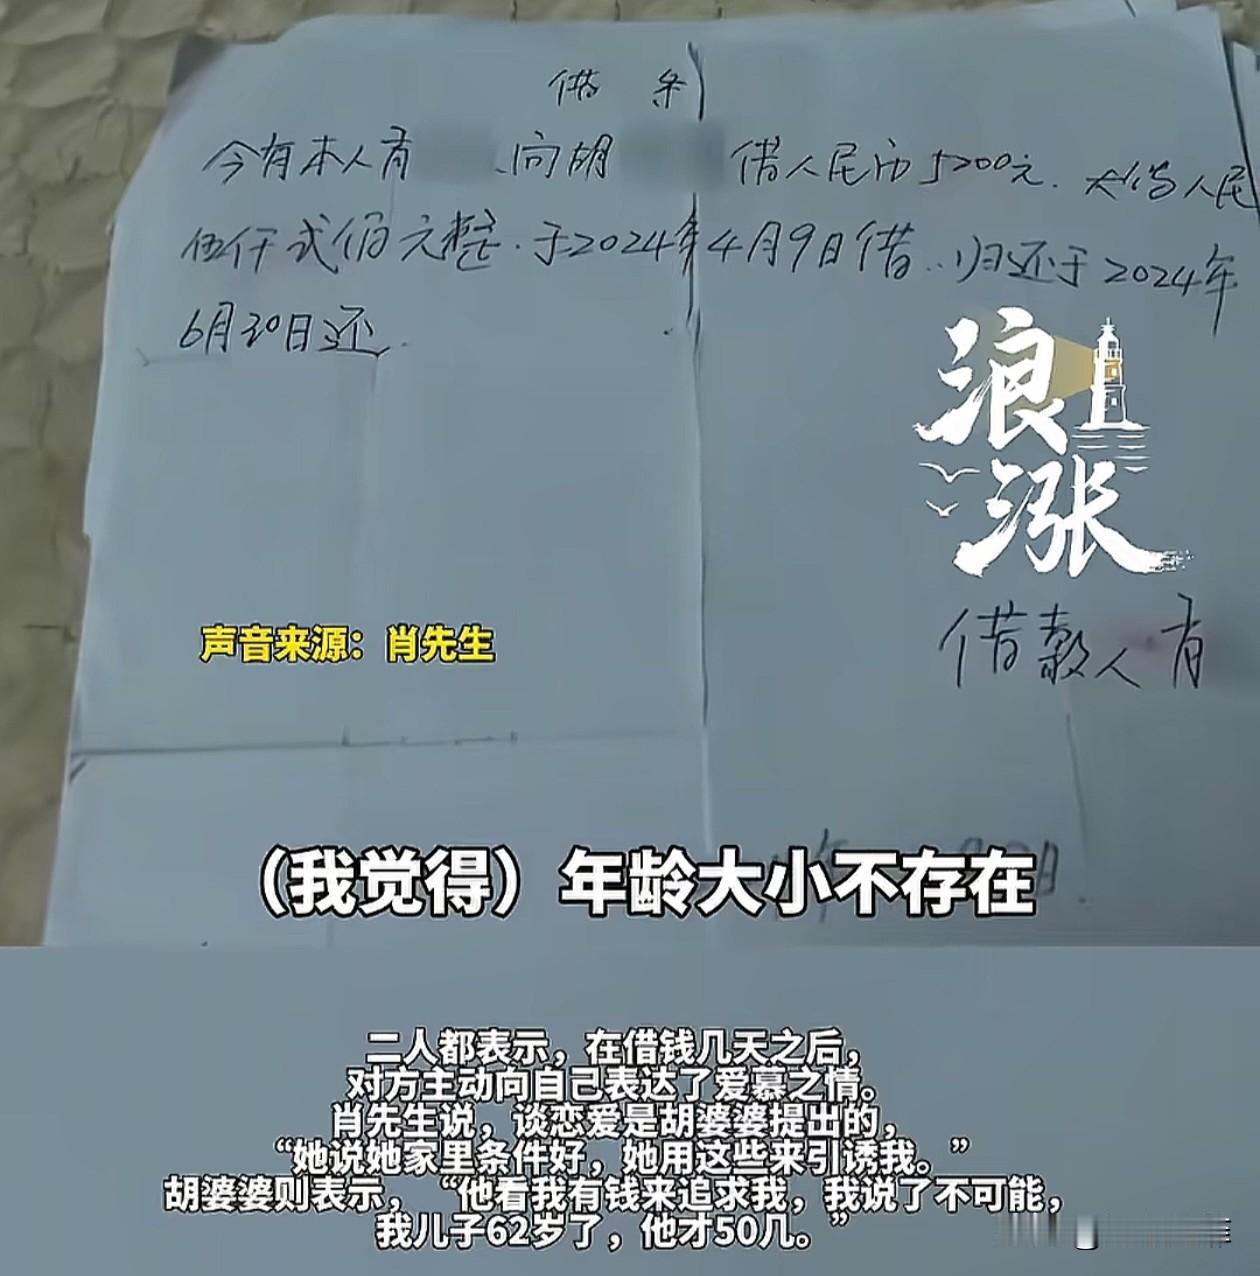 借 条
今有本人肖 向胡 借人民币5200元. 大写人民
伍仟贰佰元整.于2024年4月9日借..归还于2024年
6月30日还.
浪
涨
声音来源：肖先生
借款人肖
（我觉得）年龄大小不存在
二人都表示，在借钱几天之后，
对方主动向自己表达了爱慕之情。
肖先生说，谈恋爱是胡婆婆提出的，
“她说她家里条件好，她用这些来引诱我。”
胡婆婆则表示，“他看我有钱来追求我，我说了不可能，
我儿子62岁了，他才50几。”